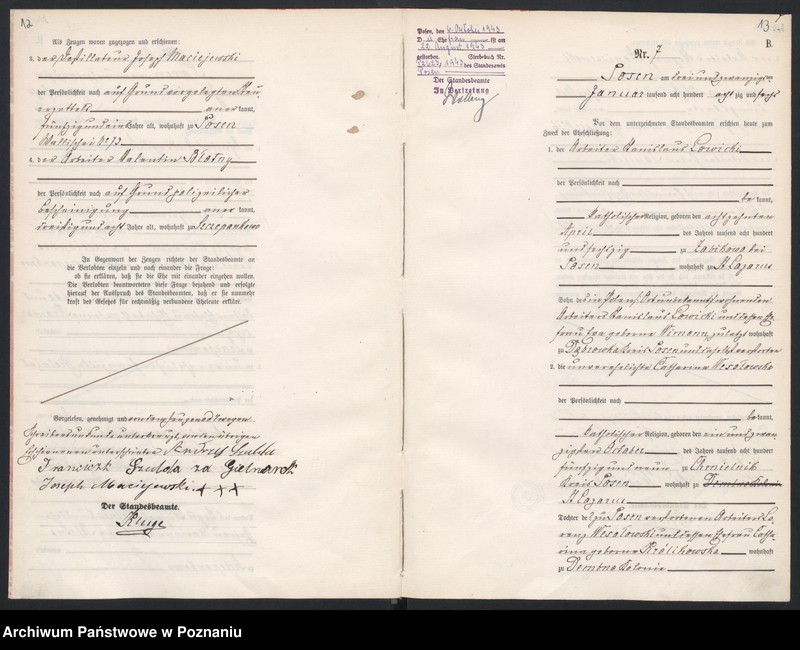 12
Als Zeugen waren zugezogen und erschienen:
3. der Destillateur Joseph Maciejewski
der Persönlichkeit nach auf Grund vorgelegten
anerkannt,
fünfzig und ein Jahre alt, wohnhaft zu Posen
Wallischei No 73
4. der Arbeiter Valentin Blotny
der Persönlichkeit nach auf Grund polizeilicher
Bescheinigung anerkannt,
dreißig und acht Jahre alt, wohnhaft zu Szczepankowo
In Gegenwart der Zeugen richtete der Standesbeamte an
die Verlobten einzeln und nach einander die Frage:
ob sie erklären, daß sie die Ehe mit einander eingehen wollen.
Die Verlobten beantworteten diese Frage bejahend und erfolgte
hierauf der Ausspruch des Standesbeamten, daß er sie nunmehr
kraft des Gesetzes für rechtmäßig verbundene Eheleute erkläre.
Vorgelesen, genehmigt und von dem Zeugen Blotny wegen
Schreibensunkunde unterkreuzt, von den übrigen
Erschienenen unterschrieben Andrzej
Franciszek Szulda za
Joseph Maciejewski. + + +
Der Standesbeamte.
Kluge
Posen, den 6. Oktober 1943
D ie Ehefrau ist am
22. August 1943
gestorben. Sterbebuch Nr.
1943 des Standesamts
Posen
Der Standesbeamte
In Vertretung
13
B.
Nr. 7
Posen am drei und zwanzigsten
Januar tausend acht hundert achtzig und sechs
Vor dem unterzeichneten Standesbeamten erschienen heute zum
Zweck der Eheschließung:
1. der Arbeiter Stanislaus Lowicki
der Persönlichkeit nach
be kannt,
katholischer Religion, geboren den achtzehnten
April des Jahres tausend acht hundert
und sechzig zu Zabikowo bei
Posen wohnhaft zu St Lazarus
Sohn des
Arbeiters Stanislaus Lowicki und dessen Ehe-
frau Eva geborne Nimann, zuletzt wohnhaft
zu Dąbrowka Kreis Posen und daselbst verstorben
2. die unverehelichte Catharina Wesołowska
der Persönlichkeit nach
be kannt,
katholischer Religion, geboren den ein und zwan-
zigsten October des Jahres tausend acht hundert
fünfzig und neun zu Chmielnik
Kreis Posen wohnhaft zu
St Lazarus
Tochter des zu Posen verstorbenen Arbeiters Lo-
renz Wesołowski und dessen Ehefrau Catha-
rina geborne Królikowska wohnhaft
zu Dembsen Kolonie
Archiwum Państwowe w Poznaniu